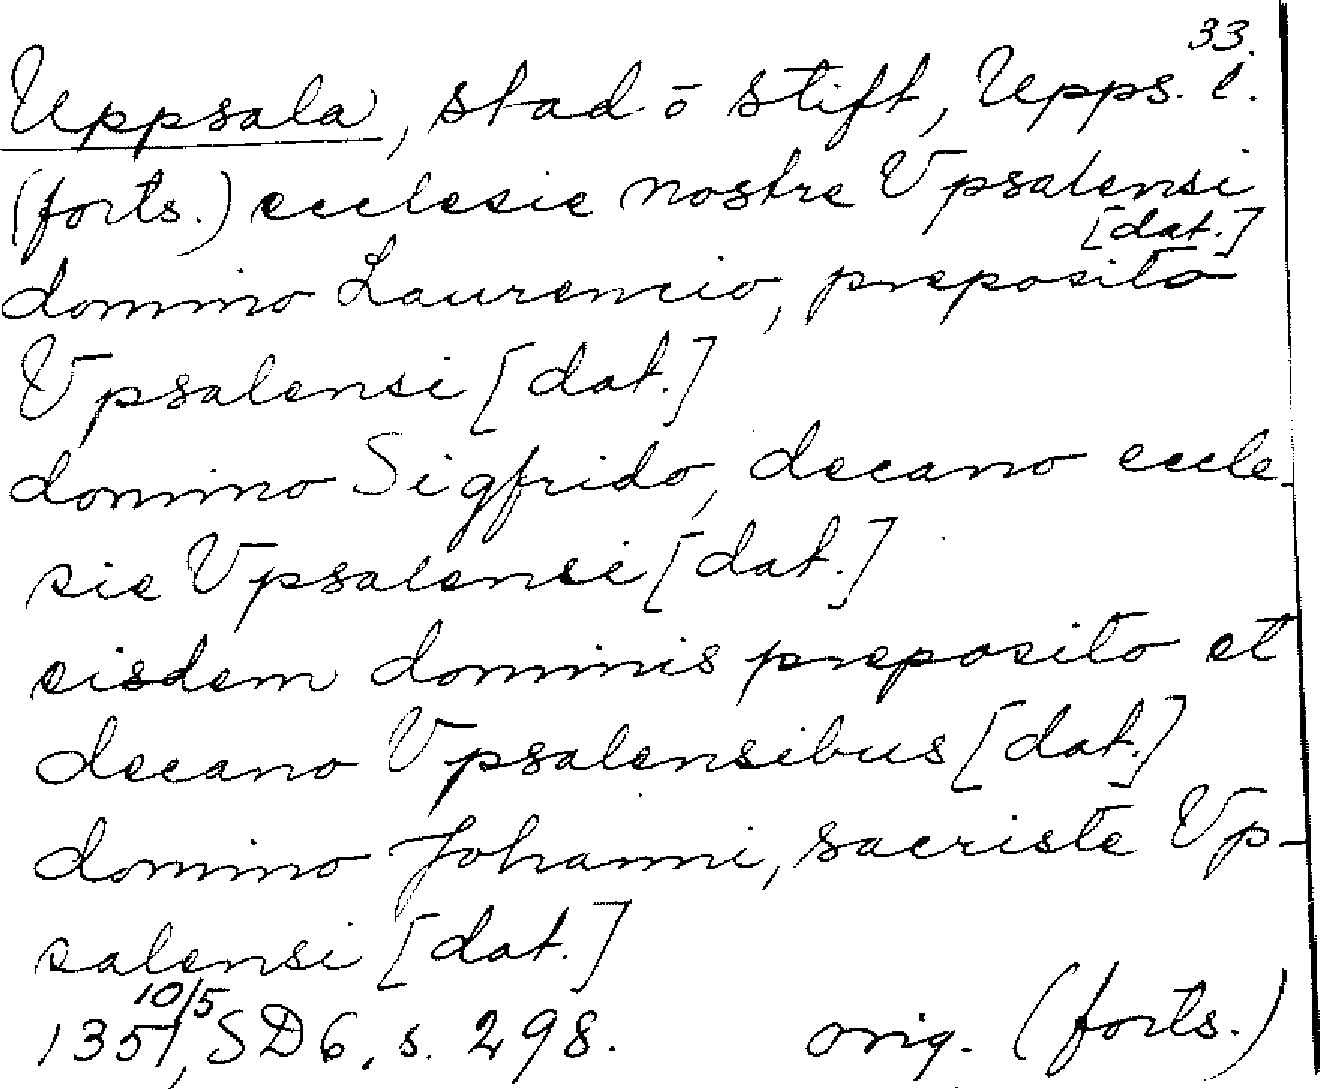 33.
Uppsala, stad o stift, Upps. l.
(forts.) ecclesie nostre Vpsalensi
[dat.]
domino Laurencio, preposito
Vpsalensi [dat.]
domino Sigfrido, decano eccle-
sie Vpsalensi [dat.]
eisdem dominis preposito et
decano Vpsalensibus [dat.]
domino Johanni, sacriste Vp-
salensi [dat.]
10/5
1351, SD 6, s. 298. orig. (forts.)